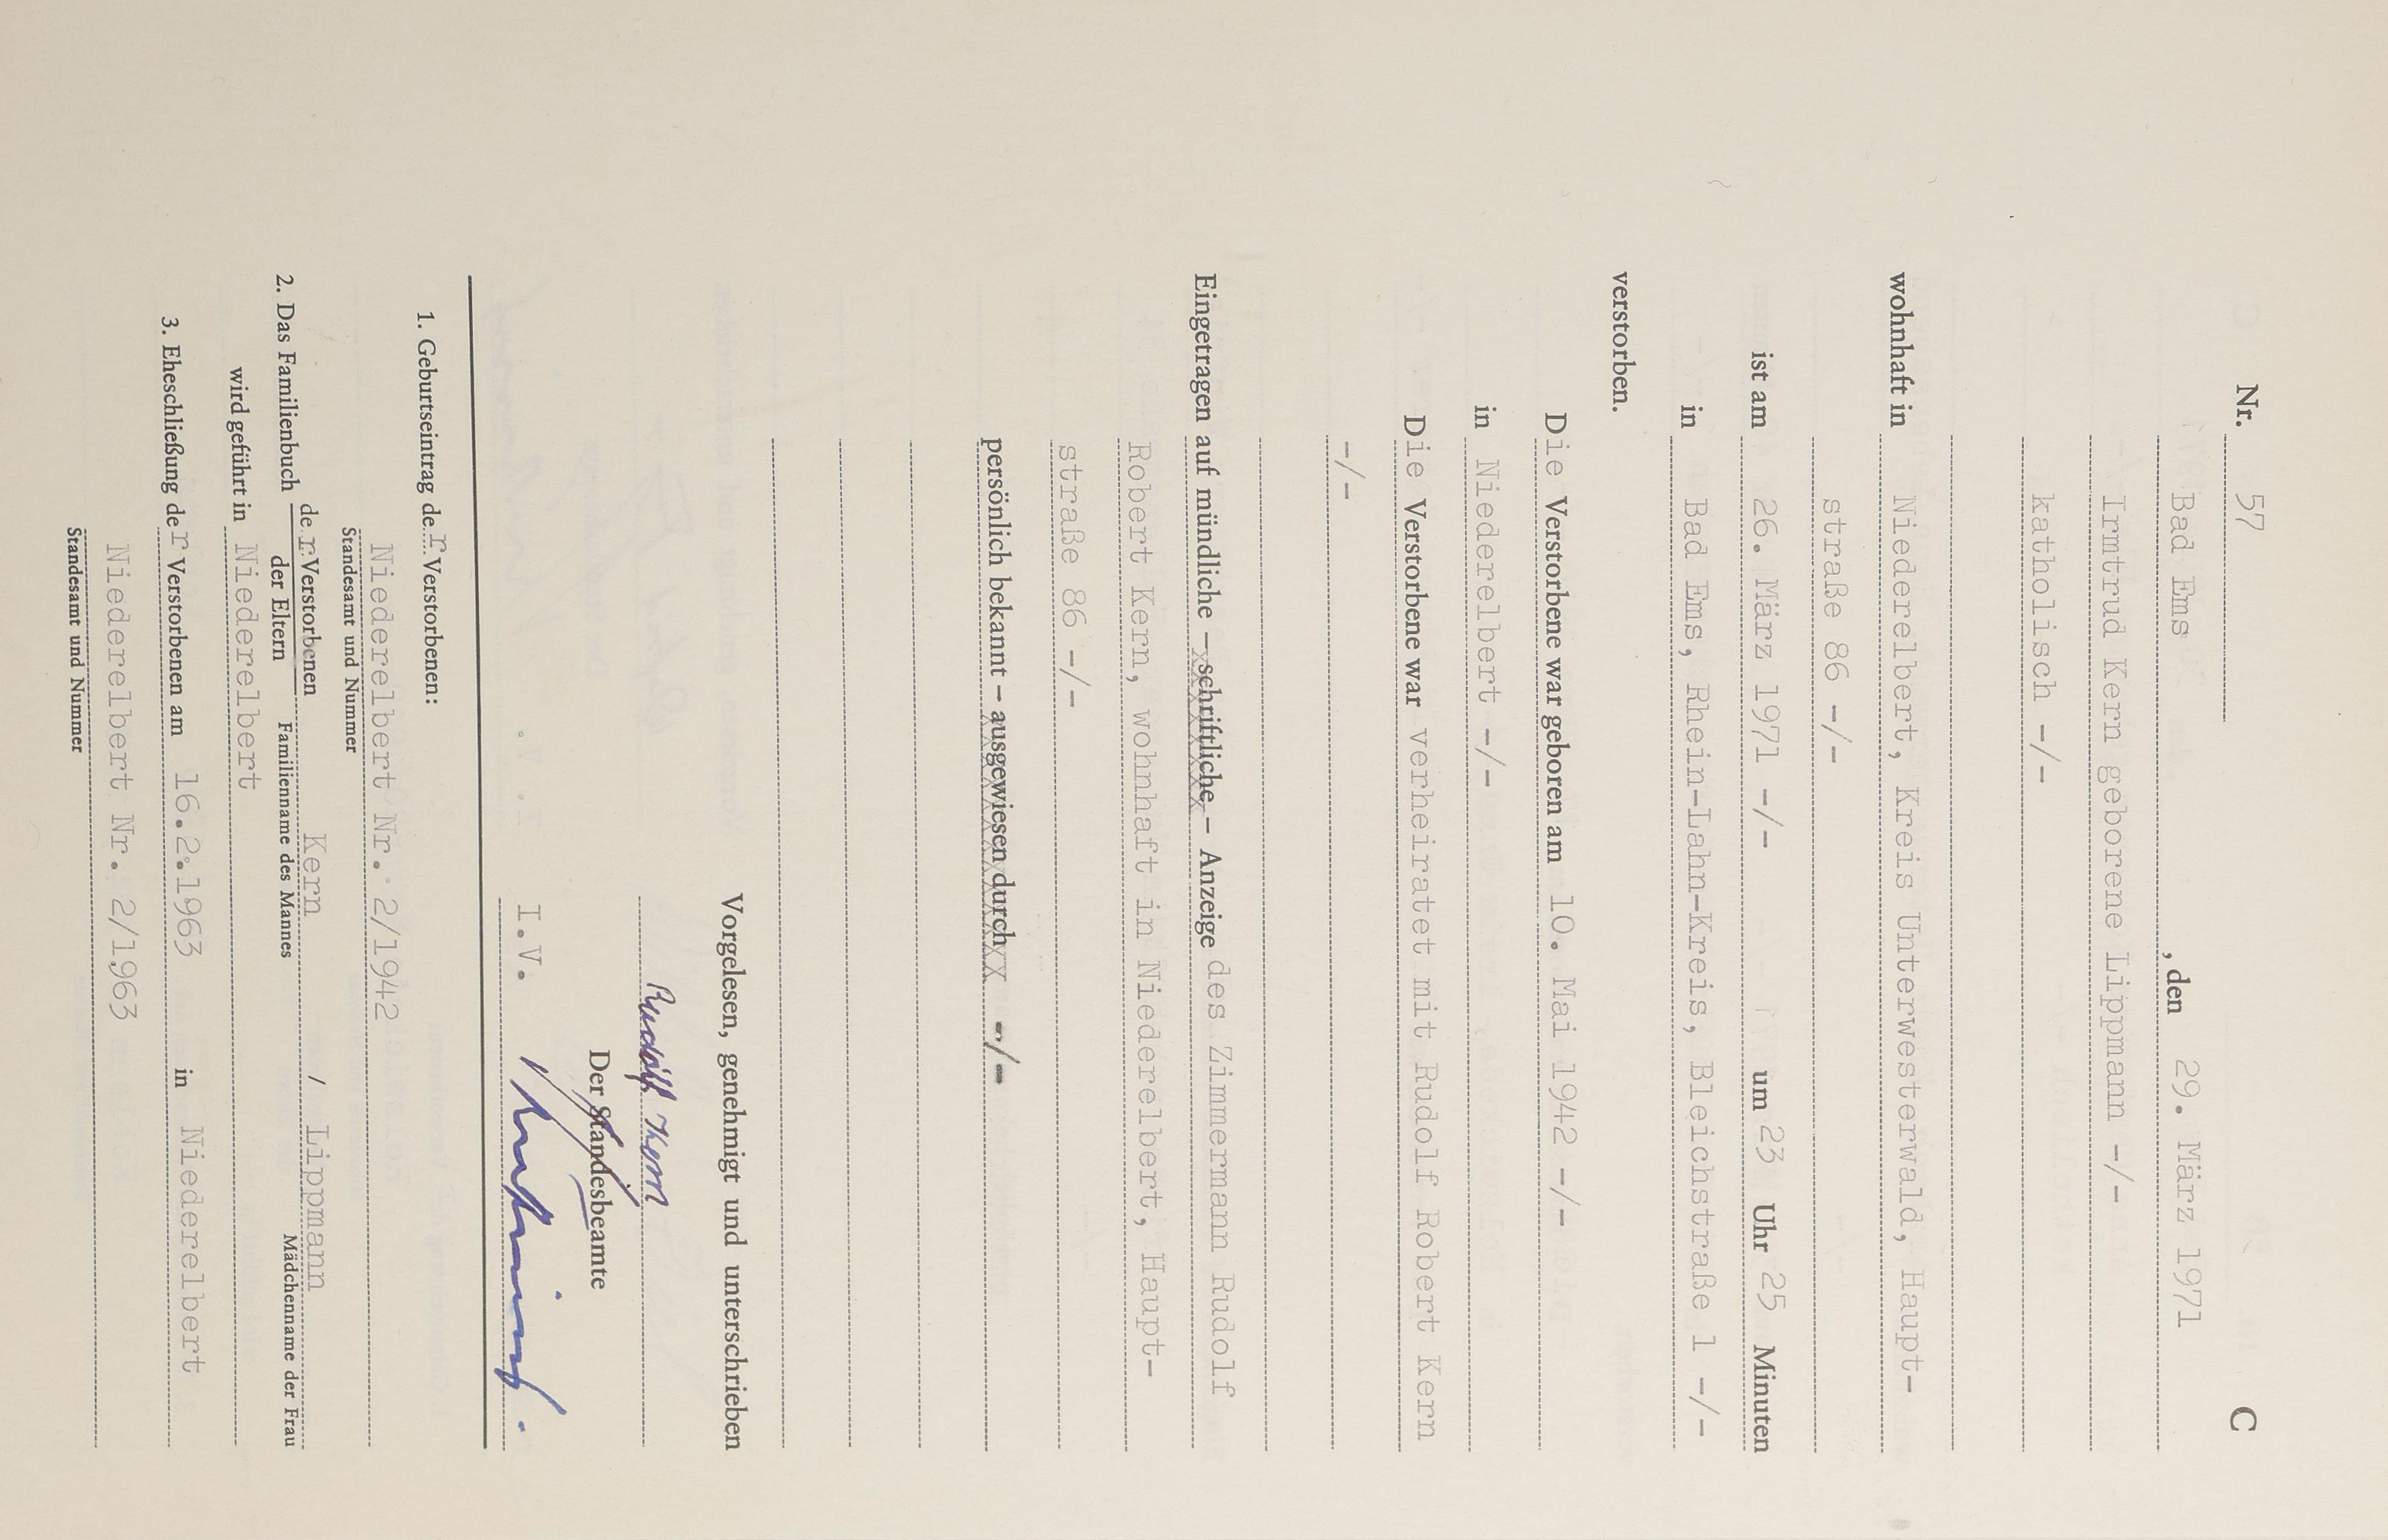 Nr. 57 C
Bad Ems, den 29. März 1971
Irmtrud Kern geborene Lippmann -/-
katholisch -/-
wohnhaft in Niederelbert, Kreis Unterwesterwald, Haupt-
straße 86 -/-
ist am 26. März 1971 -/- um 23 Uhr 25 Minuten
in Bad Ems, Rhein-Lahn-Kreis, Bleichstraße 1 -/-
verstorben.
Die Verstorbene war geboren am 10. Mai 1942 -/-
in Niederelbert -/-
Die Verstorbene war verheiratet mit Rudolf Robert Kern
-/-
Eingetragen auf mündliche - schriftliche - Anzeige des Zimmermann Rudolf
Robert Kern, wohnhaft in Niederelbert, Haupt-
straße 86 -/-
persönlich bekannt - ausgewiesen durch XX -/-
Vorgelesen, genehmigt und unterschrieben
Rudolf Kern
Der Standesbeamte
I.V.
1. Geburtseintrag der Verstorbenen:
Niederelbert Nr. 2/1942
Standesamt und Nummer
2. Das Familienbuch der Verstorbenen Kern / Lippmann
der Eltern Familienname des Mannes Mädchenname der Frau
wird geführt in Niederelbert
3. Eheschließung der Verstorbenen am 16.2.1963 in Niederelbert
Niederelbert Nr. 2/1963
Standesamt und Nummer